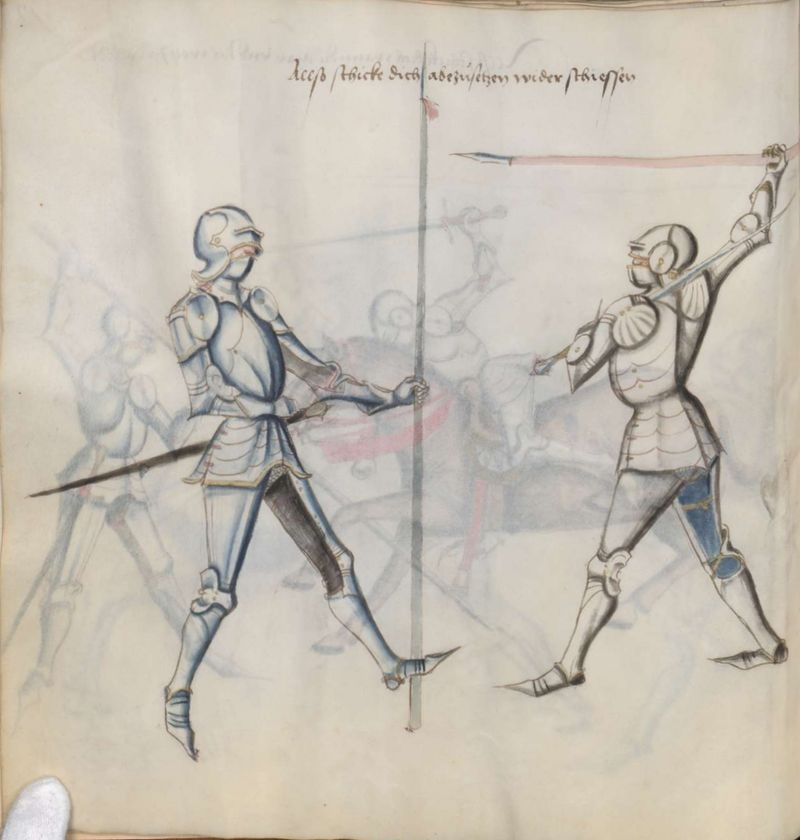 Allso schicke dich abezuseczen wider schiessen